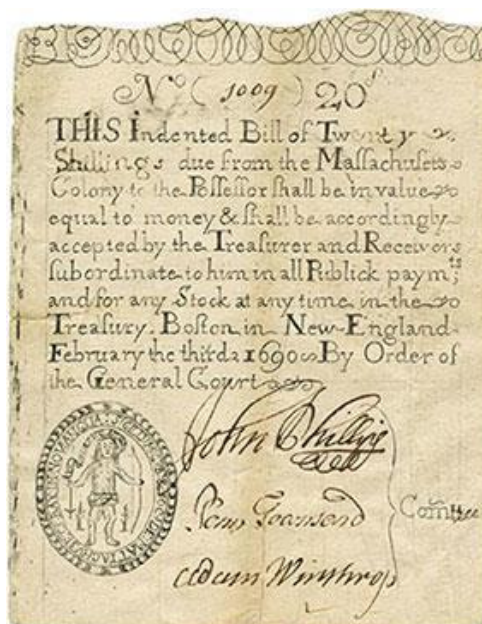 No (1009) 20s
THIS Indented Bill of Twenty
Shillings due from the Massachusets
Colony to the Possessor shall be in value
equal to money & shall be accordingly
accepted by the Treasurer and Receivers
subordinate to him in all Publick paymts;
and for any Stock at any time in the
Treasury. Boston in New-England
February the third 1690 By Order of
the General Court
John Phillips
Penn Townsend
Adam Winthrop
Comttee